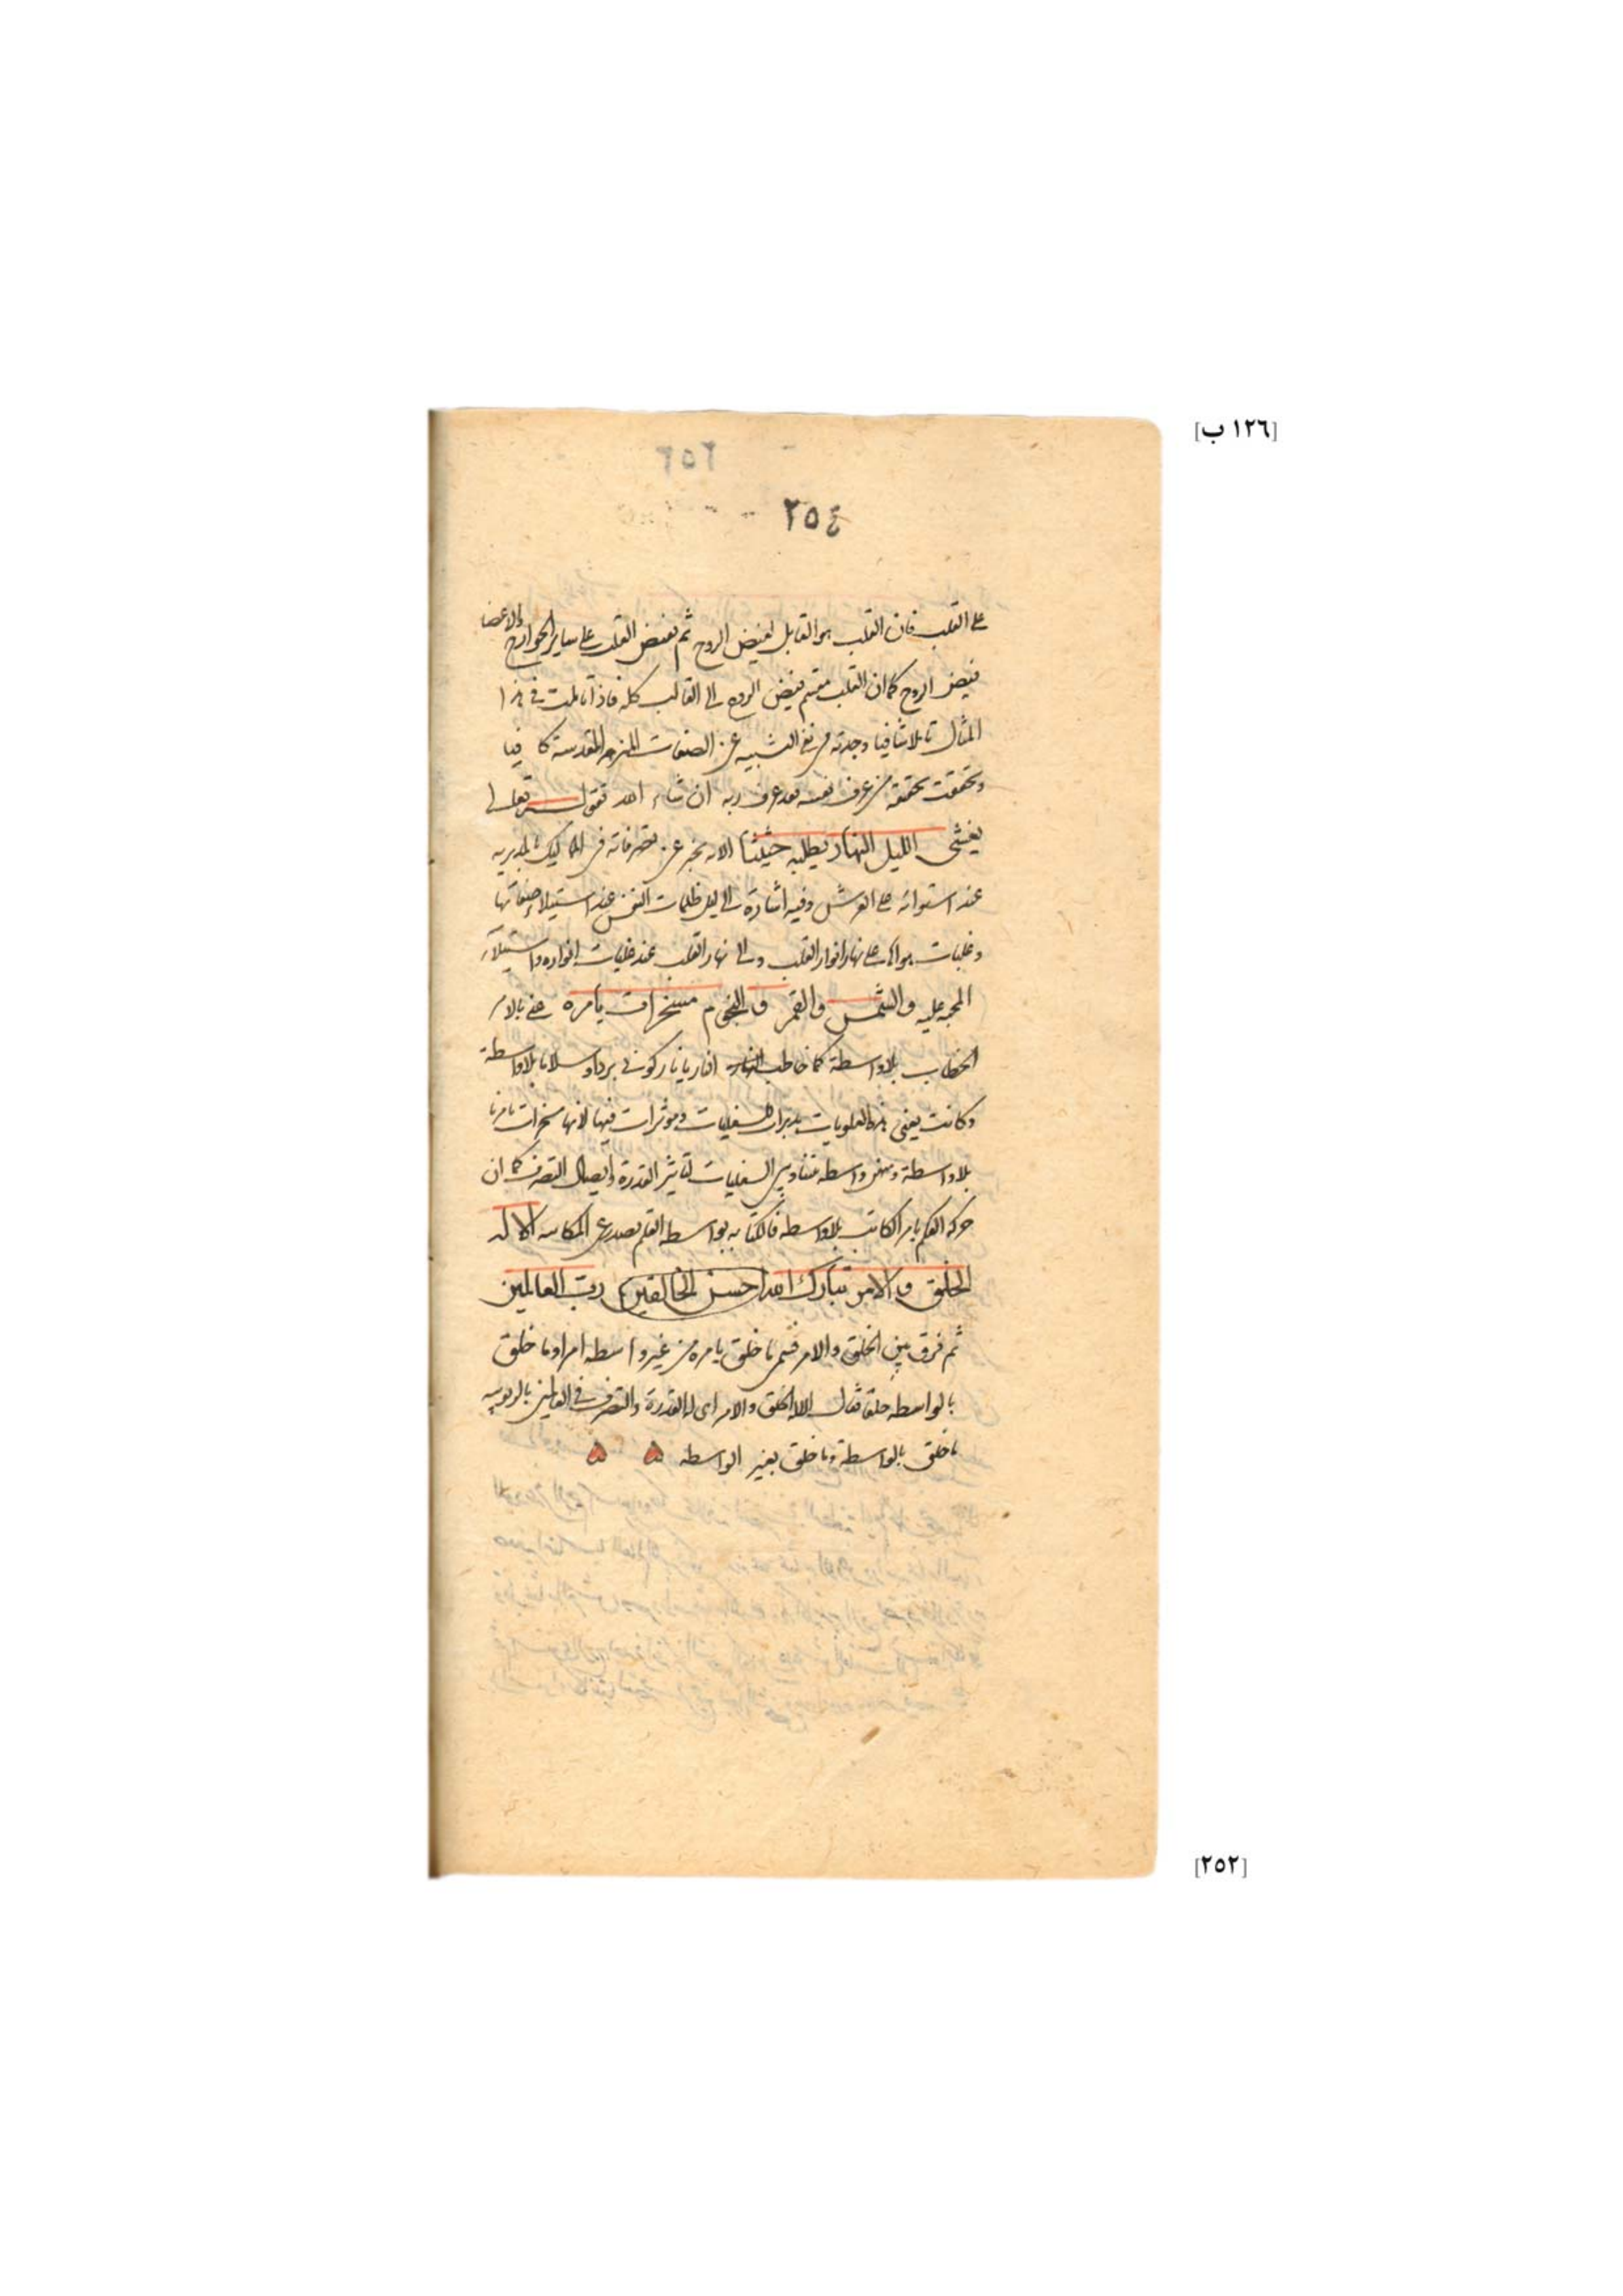 [١٢٦ ب]
٢٥٤
على القلب فان القلب هو القابل لفيض الروح ثم يفيض القلب على ساير الجوارح والاعضا
فيض الروح كما ان القلب مقسم فيض الروح الى القالب كله فاذا تاملت في هذا
المثال تاملا شافيا وجدته في نفي التشبيه عن الصفات المنزهة المقدسة كافيا
وتحققت تحقيقه من عرف نفسه فقد عرف ربه ان شاء الله فقوله تعالى
يغشى الليل النهار يطلبه حثيثا الاية يخبر عن تصرفاته في المماليك بالمدبرية
عند استوائه على العرش وفيه اشارة الى ليل ظلمات النفس عند استيلاء صفاتها
وغلبات هواها على نهار انوار القلب والى نهار القلب عند غلبات انواره واستيلاء
المحبة عليه والشمس والقمر والنجوم مسخرات بامره عنى بالامر
الخطاب بلا واسطة كما خاطب النار يا نار كوني بردا وسلاما بلا واسطة
وكانت يعني هذه العلويات مدبرات السفليات وموثرات فيها لانها مسخرات بامرنا
بلا واسطة السفليات لتاثير القدرة وايصال التصرف كما ان
حركة القلم بامر الكاتب بلا واسطة فالكتابة بواسطة القلم تصدر عن الكاتب الا له
الخلق والامر تبارك الله احسن الخالقين رب العالمين
ثم فرق بين الخلق والامر فسمى ما خلق بامره من غير واسطة امرا وما خلق
بالواسطة خلقا فقال الا له الخلق والامر اى له القدرة والتصرف في العالمين بالربوبية
ما خلق بالواسطة وما خلق بغير الواسطه
[٢٥٢]